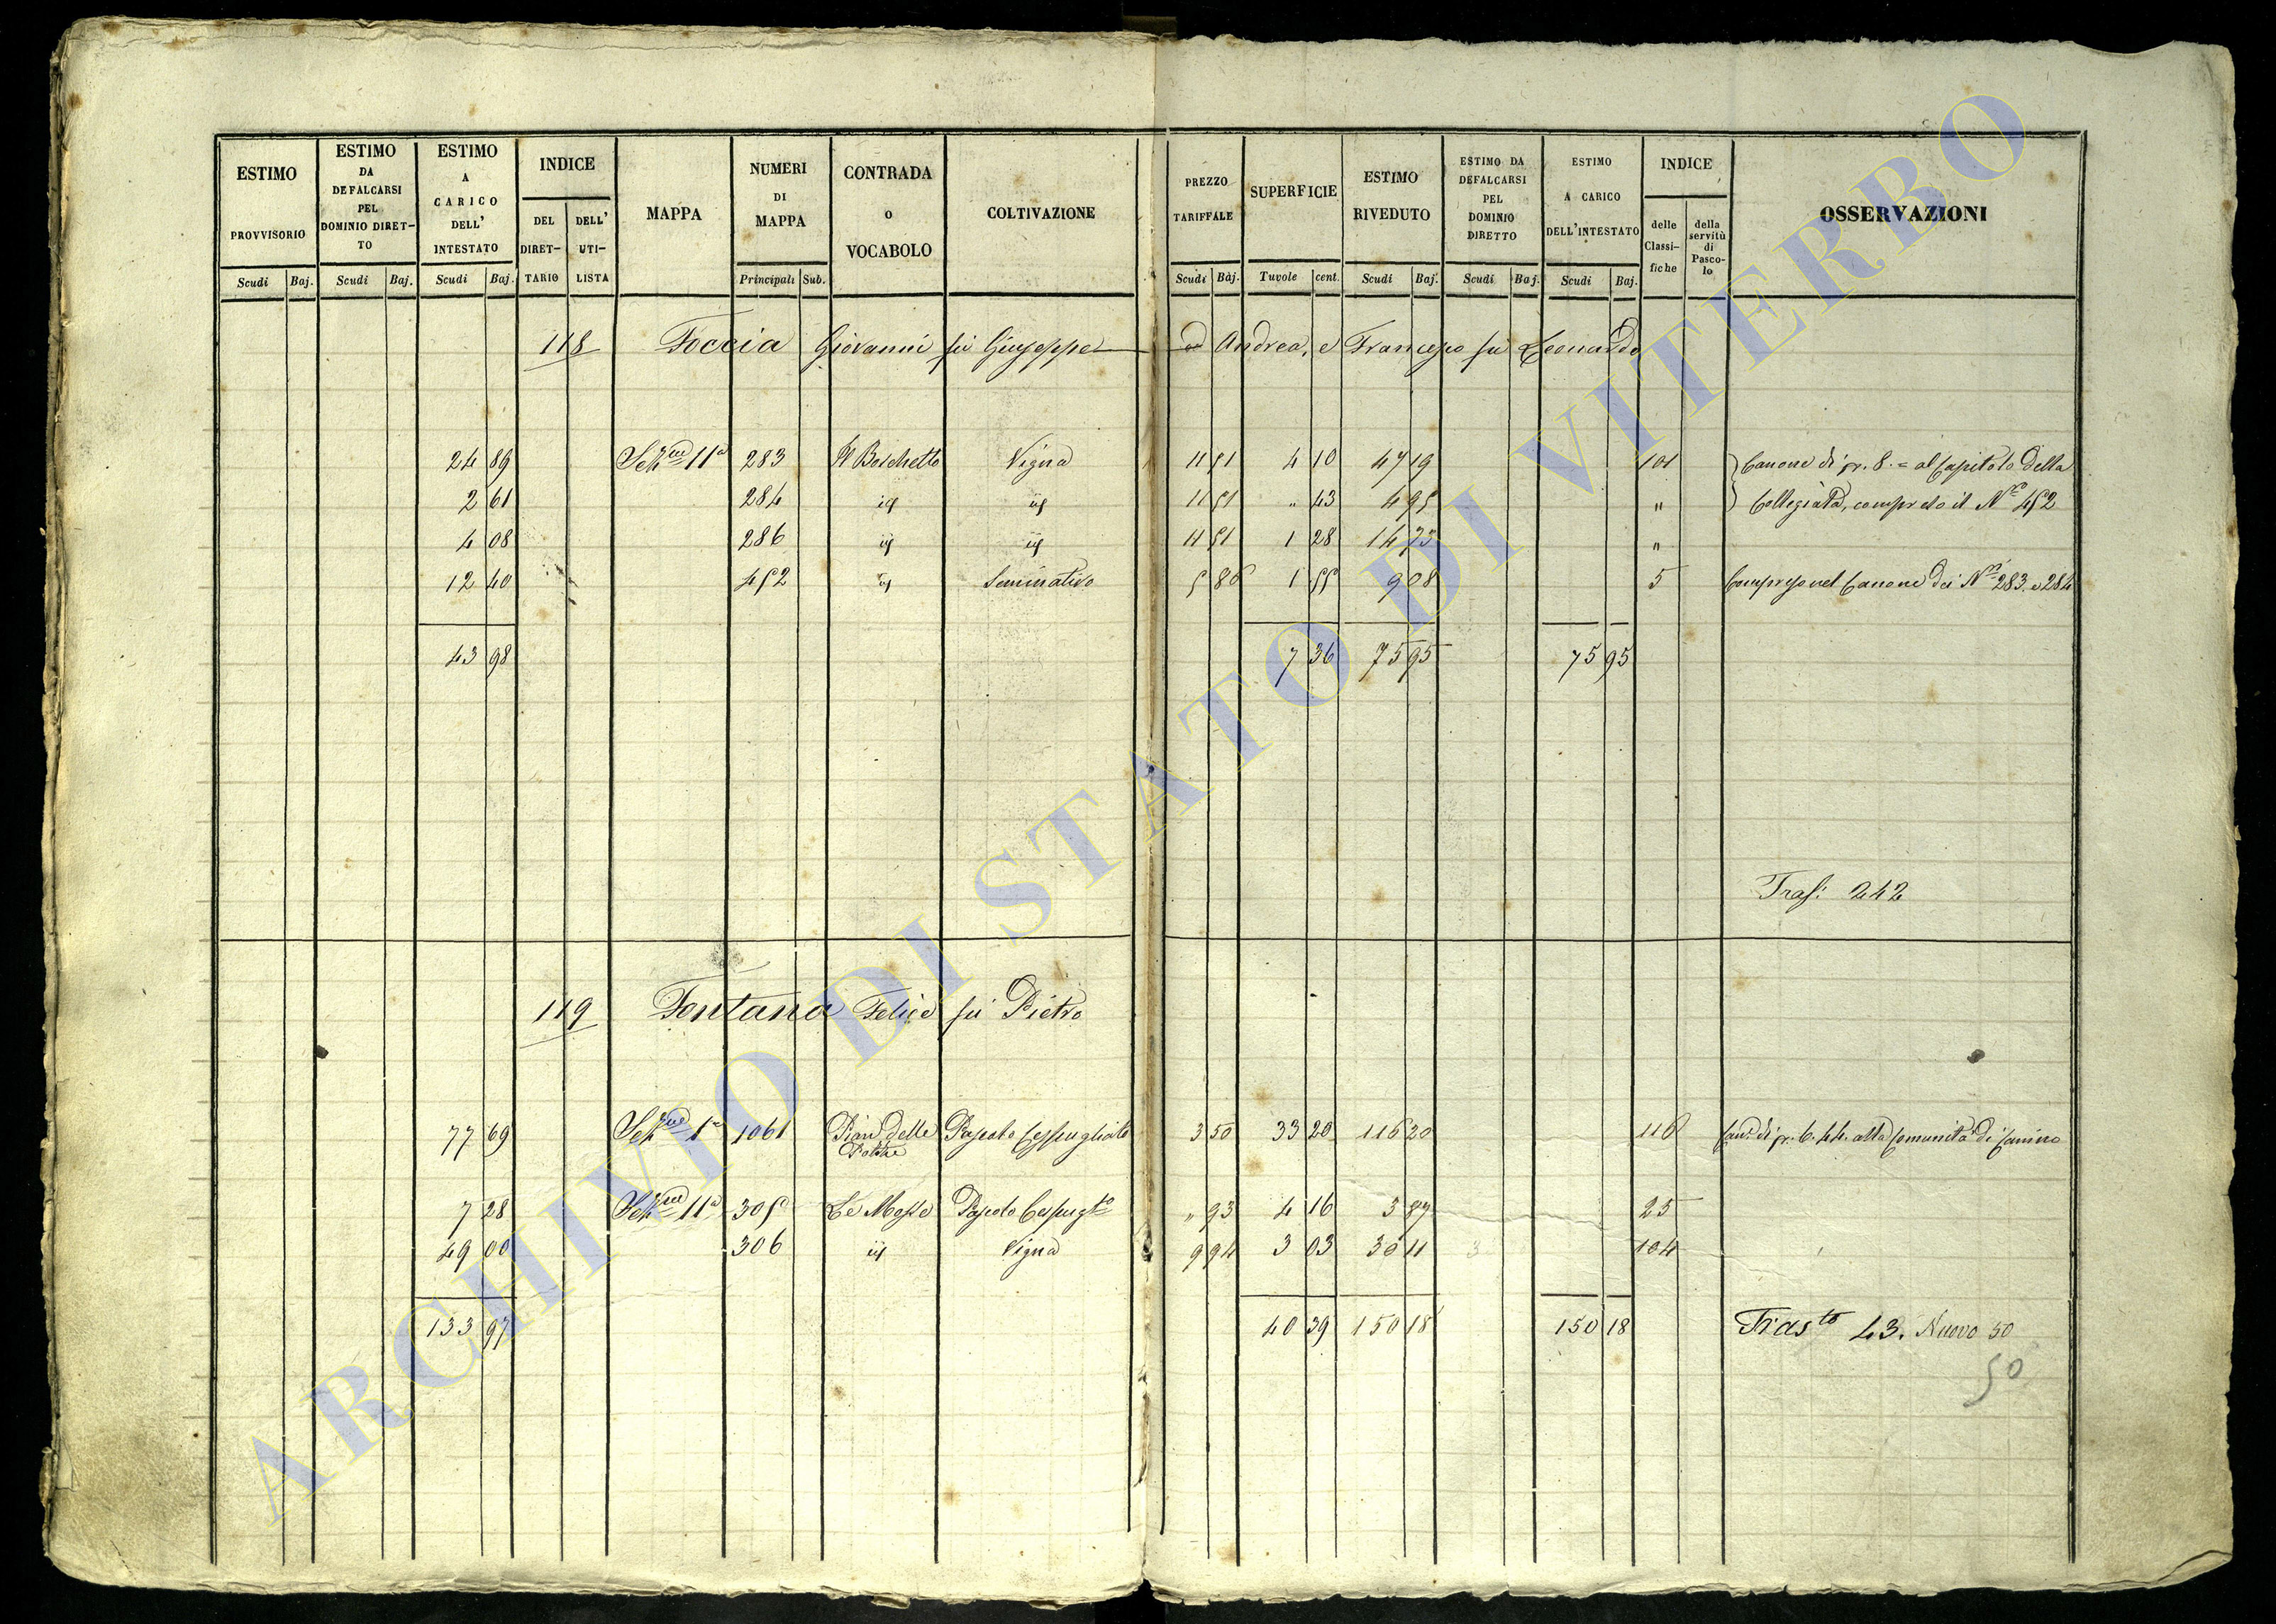 ESTIMO PROVVISORIO Scudi Baj.
ESTIMO DA DEFALCARSI PEL DOMINIO DIRET-TO Scudi Baj.
ESTIMO A CARICO DELL' INTESTATO Scudi Baj.
INDICE DEL DIRET-TARIO DELL' UTI-LISTA
MAPPA
NUMERI DI MAPPA Principali Sub.
CONTRADA o VOCABOLO
COLTIVAZIONE
PREZZO TARIFFALE Scudi Baj.
SUPERFICIE Tavole cent.
ESTIMO RIVEDUTO Scudi Baj.
ESTIMO DA DEFALCARSI PEL DOMINIO DIRETTO Scudi Baj.
ESTIMO A CARICO DELL'INTESTATO Scudi Baj.
INDICE delle Classi-fiche della servitù di Pasco-lo
OSSERVAZIONI
118 Foccia Giovanni fu Giuseppe ed Andrea, e Francesco fu Leonardo
24 89 Sezne 11a 283 Il Boschetto Vigna 11 51 4 10 47 19 101 Canone di 8. = al Capitolo della
2 61 284 id id 11 51 " 43 4 95 " Collegiata, compreso il No 452
4 08 286 id id 11 51 1 28 14 73 "
12 40 452 id Seminativo 5 86 1 55 9 08 5 Compreso nel Canone dei Nri 283. e 284
43 98 7 36 75 95 75 95
Trasf. 242
119 Fontana Felice fu Pietro
77 69 Sezne 1a 1061 Pian delle Pascolo Cespugliato 3 50 33 20 116 20 116 Can. di 6. 44. alla Comunità di Canino
7 28 Sezne 11a 305 Le Mosse Pascolo Cespugto " 93 4 16 3 87 25
49 00 306 id Vigna 9 94 3 03 30 11 3 104
133 97 40 39 150 18 150 18 Trasto 43. Nuovo 50
50
ARCHIVIO DI STATO DI VITERBO